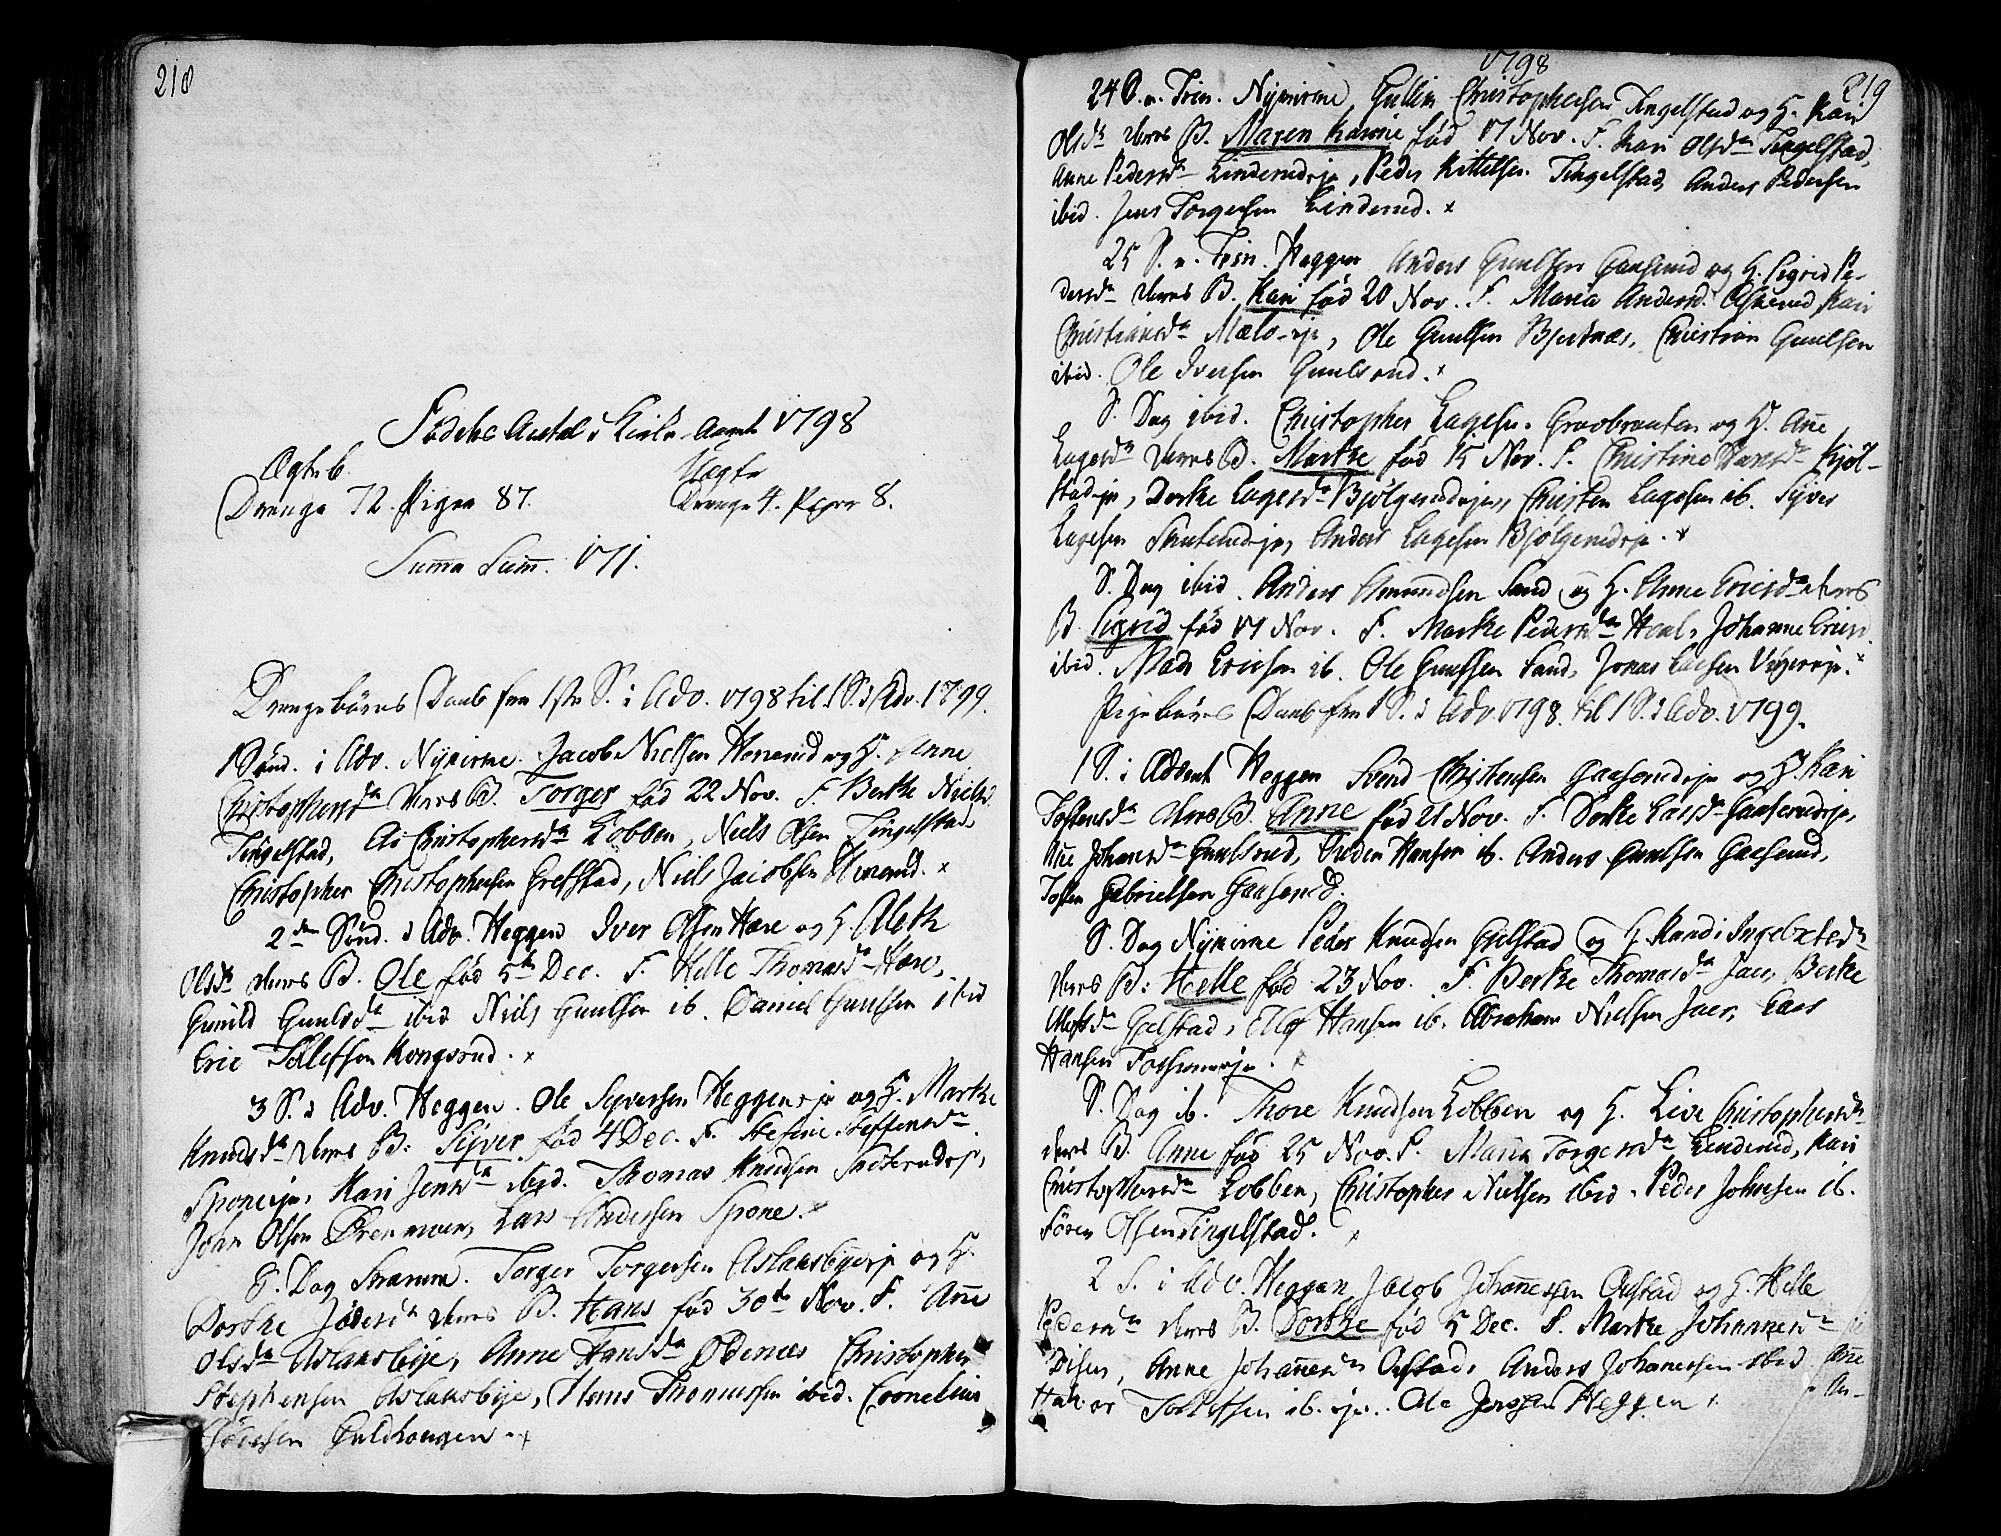 218
Fødebe Antal i Kirke-Aaret 1798
Ægteb. Uægte
Drenge 72. Piger 87. Drenge 4. Piger 8.
Summa Summ. 171.
Drengebørns Daab fra 1ste S. i Adv. 1798 til 1 S. i Adv. 1799.
1 Sønd. i Adv. Nykirke. Jacob Nielsen Horerud og H. Anne
Christophersda deres B. Torger fød 22 Nov. F. Berthe Nielsd.
Tingelstad, Christophersda Lobben, Niels Olsen Tingelstad
Christopher Christophersen Grefstad, Niels Jacobsen Horerud. x
2den Sønd. i Adv. Heggen Iver Olsen Hære og H. Aleth
Olsda deres B. Ole fød 5te Dec. F. Helle Thomasda Hære,
Gunild Gunlsda ibid Niels Gunlsen ib. Daniel Gunlsen ibid
Eric Tollefsen Kongsrud. x
3 S. i Adv. Heggen. Ole Syversen Heggeneje og H. Marthe
Knudsda deres B. Syver fød 4 Dec. F. Steffensda
Sponeeje, Kari Jensda ibid. Thomas Knudsen
John Olsen Lars Andersen Spone. x
S. Dag Snarum. Torger Torgersen Aslaksbyeeje og H.
Dorthe deres B. Hans fød 30te Nov. F. Añe
Olsda Aslaksbye, Anne Hansda Ødenæs Christopher
Stephensen Aslaksbye, Hans Thomessen ibid. Cornelius
Guldhougen. x
1798
219
24 S. n. Trin. Nykirke, Gullik Christophersen Tingelstad og H. Kari
Olsda deres B. Maren Karine fød 17 Nov. F. Kari Olsda Tingelstad,
Anne Pedersda Linderudeje, Peder Kittelsen Tingelstad Anders Pedersen
ibid. Jens Torgersen Linderud. x
25 S. n. Trin. Heggen Anders Gunlsen Gaaserud og H. Sigrid Pe-
dersda deres B. Kari fød 20 Nov. F. Maria Andersd. Askerud Kari
Christiansda Mælo-eje, Ole Gunlsen Bjertnæs, Christian Gunlsen
ibid. Ole Iversen Gunlsrud. x
S. Dag ibid. Christopher Lagesen Graobraaten og H. Añe
Lagesda deres B. Marthe fød 15 Nov. F. Christine Hansda Kjøl-
stadeje, Dorthe Lagesda Bjølgerudeje, Christen Lagesen ib. Syver
Lagesen Skuterudeje, Anders Lagesen Bjølgerudeje. x
S. Dag ibid. Anders Amundsen Sand og H. Anne Ericsda deres
B. Sigrid fød 17 Nov. F. Marthe Pedersda Houl, Johanne Ericsd.
ibid. Mads Ericsen ib. Ole Gunlsen Sand, Jonas Larsen x
Pigebørns Daab fra 1 S. i Adv. 1798. til 1 S. i Adv. 1799.
1 S. i Advent Heggen Svend Christensen Gaaserudeje og H. Kari
Tostensda deres B. Anne fød 21 Nov. F. Dorthe Larsda Gaaserudeje,
Añe Johansda Gunlsrud, Auden Hansen ib. Anders Gunlsen Gaaserud,
Tosten Gabrielsen Gaaserud.
S. Dag Nykirke Peder Knudsen Gjelstad og H. Randi Ingebretsda
deres B. Helle fød 23 Nov. F. Berthe Thomasda Jaer, Berthe
Olafsda Gjelstad, Ellef Hansen ib. Abraham Nielsen Jaer, Lars
Hansen x
S. Dag ib. Thore Knudsen Lobben og H. Live Christophersda
deres B. Anne fød 25 Nov. F. Maria Torgersda Linderud, Kari
Christophersda Lobben, Christopher Nielsen ibid. Peder Johnsen ib.
Søren Olsen Tingelstad. x
2 S. i Adv. Heggen Jacob Johannessen og H. Helle
Pedersda deres B. Dorthe fød 5 Dec. F. Marthe Johannesda
Anne Johañesda Anders Johannessen ibid Añe
Halvor Tollefsen ib. eje. Ole Jensen Heggen. An-